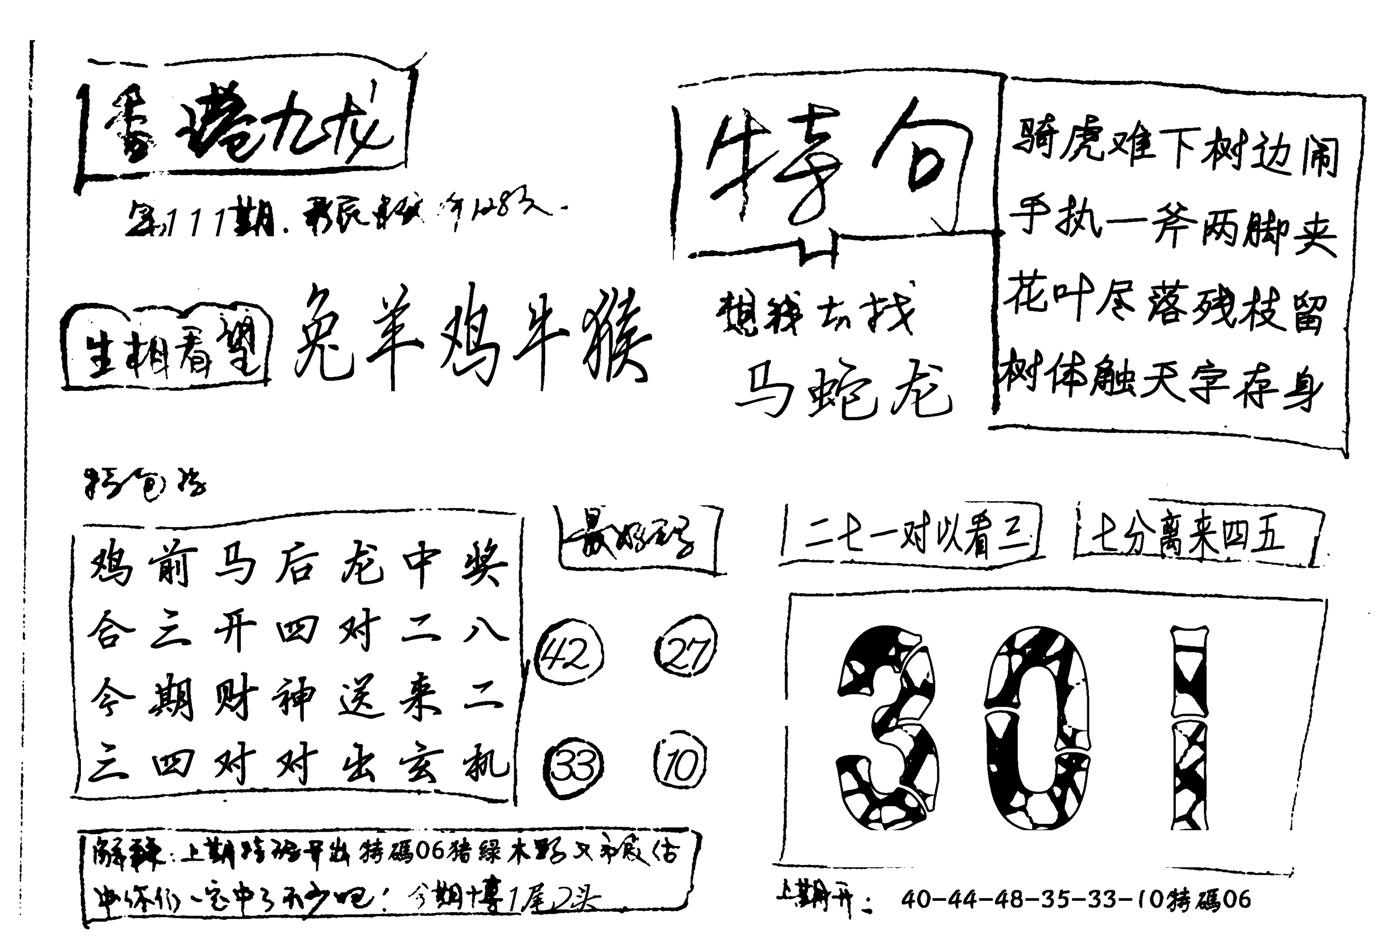 香港九龙
第111期.
生相看望
兔羊鸡牛猴
特句
想我去找
马蛇龙
骑虎难下树边闹
手执一斧两脚夹
花叶尽落残枝留
树体触天字存身
鸡前马后龙中奖
合三开四对二八
今期财神送来二
三四对对出玄机
最好
42 27
33 10
二七一对以看三
七分离来四五
301
解释:上期特码开出特碼06猪綠木野又
中你们一定中了不少吧!今期博1尾2头
上期开: 40-44-48-35-33-10特碼06